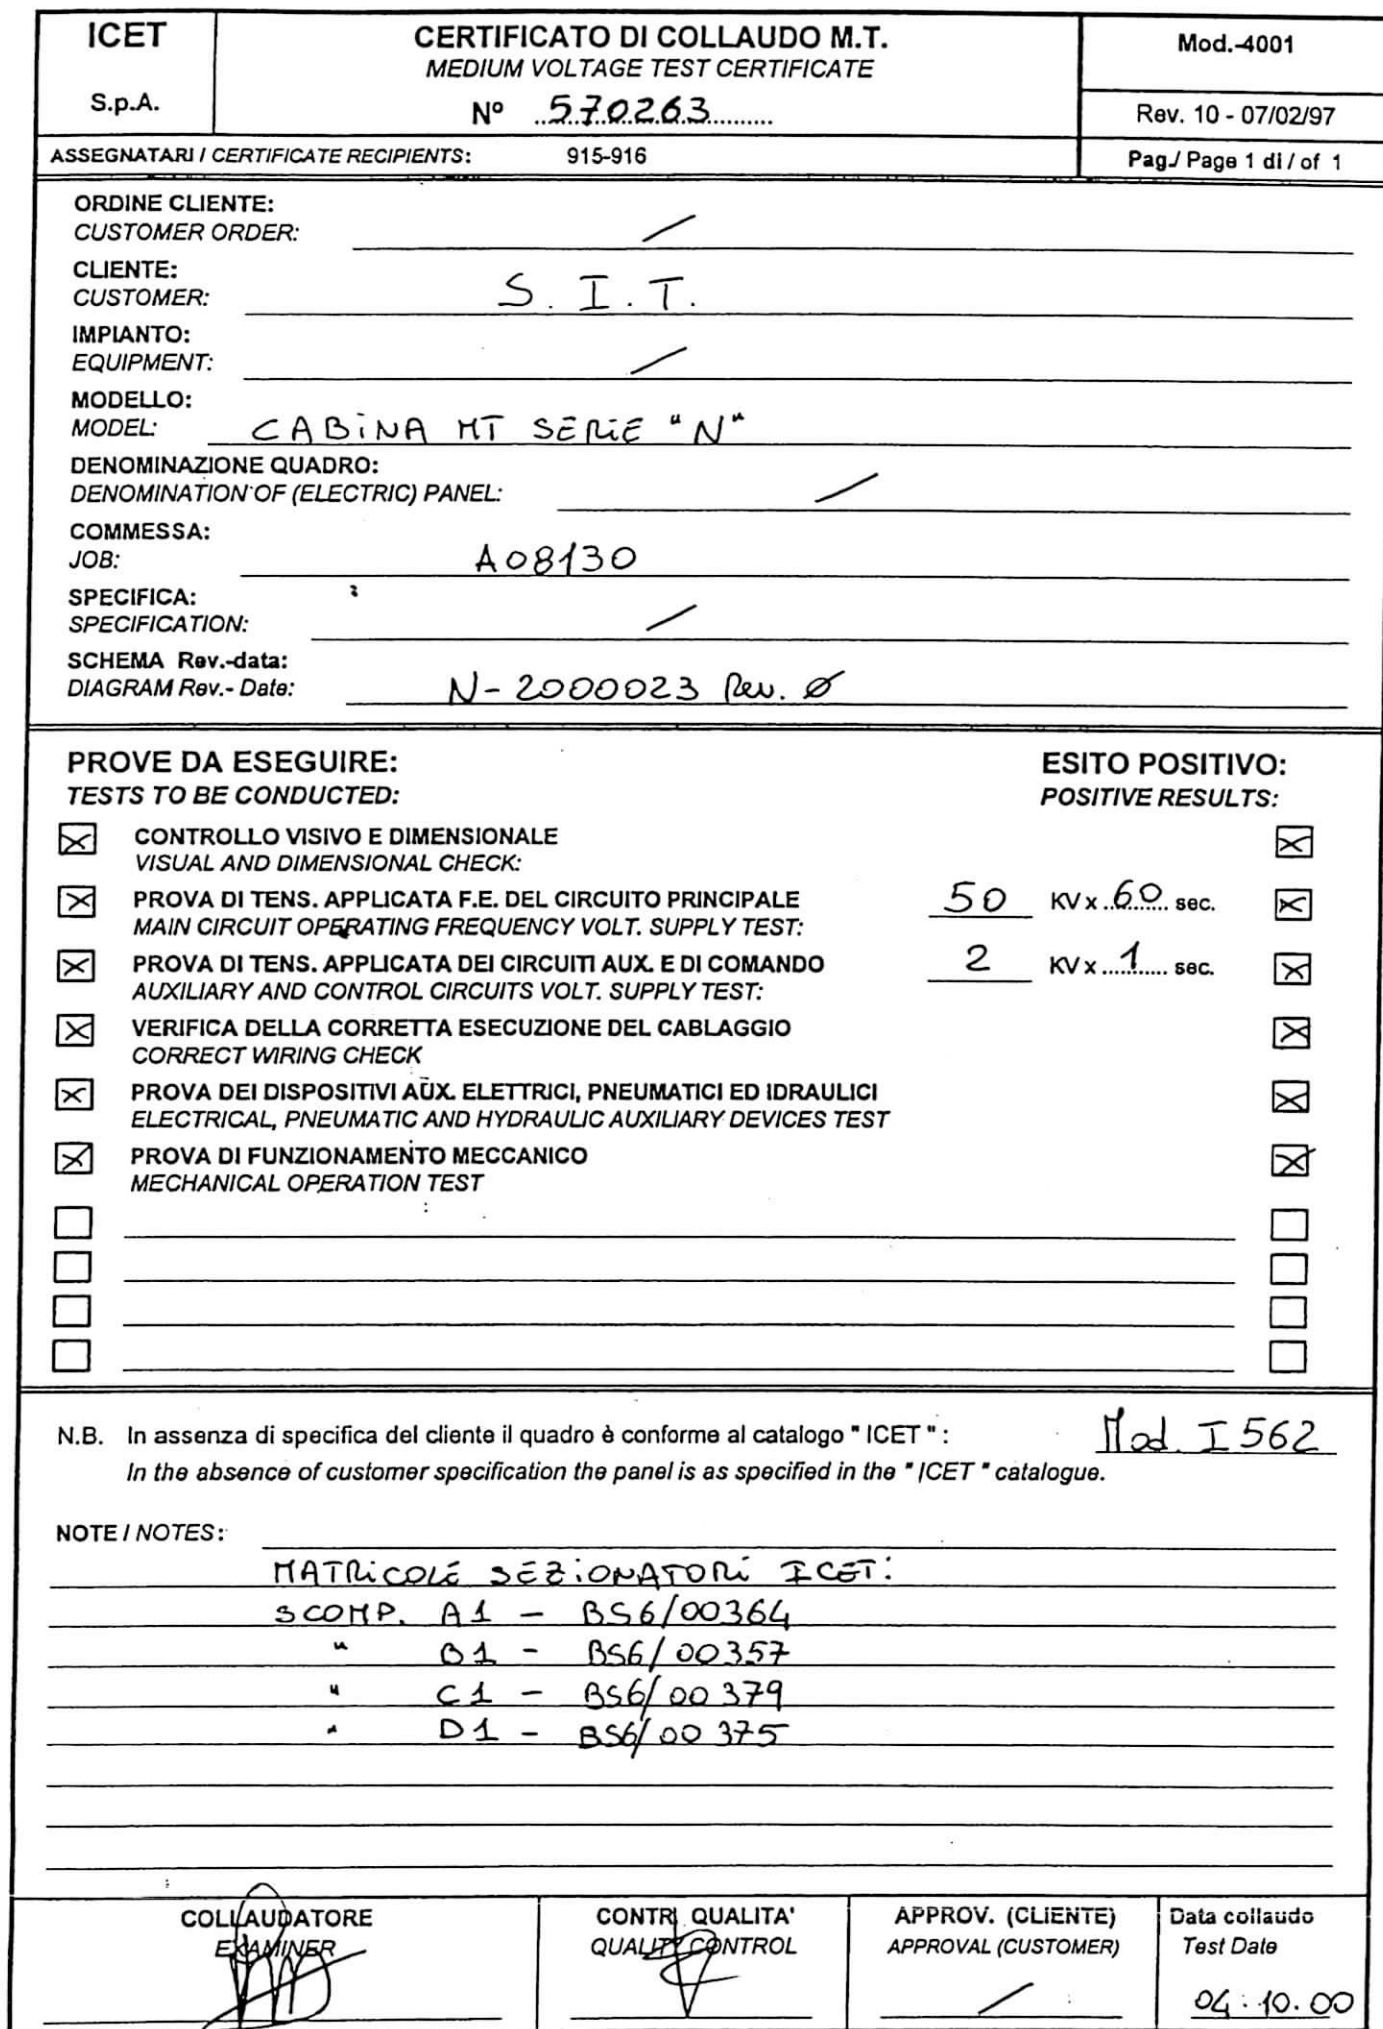 ICET
S.p.A.
CERTIFICATO DI COLLAUDO M.T.
MEDIUM VOLTAGE TEST CERTIFICATE
Nº 570263
Mod.-4001
Rev. 10 - 07/02/97
ASSEGNATARI / CERTIFICATE RECIPIENTS: 915-916
Pag./ Page 1 di / of 1
ORDINE CLIENTE:
CUSTOMER ORDER: /
CLIENTE:
CUSTOMER: S. I. T.
IMPIANTO:
EQUIPMENT: /
MODELLO:
MODEL: CABINA MT SERIE "N"
DENOMINAZIONE QUADRO:
DENOMINATION OF (ELECTRIC) PANEL: /
COMMESSA:
JOB: A08130
SPECIFICA:
SPECIFICATION: /
SCHEMA Rev.-data:
DIAGRAM Rev.- Date: N-2000023 Rev. Ø
PROVE DA ESEGUIRE: ESITO POSITIVO:
TESTS TO BE CONDUCTED: POSITIVE RESULTS:
CONTROLLO VISIVO E DIMENSIONALE
VISUAL AND DIMENSIONAL CHECK:
PROVA DI TENS. APPLICATA F.E. DEL CIRCUITO PRINCIPALE 50 KV x 60 sec.
MAIN CIRCUIT OPERATING FREQUENCY VOLT. SUPPLY TEST:
PROVA DI TENS. APPLICATA DEI CIRCUITI AUX. E DI COMANDO 2 KV x 1 sec.
AUXILIARY AND CONTROL CIRCUITS VOLT. SUPPLY TEST:
VERIFICA DELLA CORRETTA ESECUZIONE DEL CABLAGGIO
CORRECT WIRING CHECK
PROVA DEI DISPOSITIVI AUX. ELETTRICI, PNEUMATICI ED IDRAULICI
ELECTRICAL, PNEUMATIC AND HYDRAULIC AUXILIARY DEVICES TEST
PROVA DI FUNZIONAMENTO MECCANICO
MECHANICAL OPERATION TEST
N.B. In assenza di specifica del cliente il quadro è conforme al catalogo " ICET " : Mod. I 562
In the absence of customer specification the panel is as specified in the " ICET " catalogue.
NOTE / NOTES:
MATRICOLE SEZIONATORI ICET:
SCOMP. A1 - BS6/00364
" B1 - BS6/00357
" C1 - BS6/00379
" D1 - BS6/00375
COLLAUDATORE
EXAMINER
CONTR. QUALITA'
QUALITY CONTROL
APPROV. (CLIENTE)
APPROVAL (CUSTOMER)
/
Data collaudo
Test Date
04.10.00